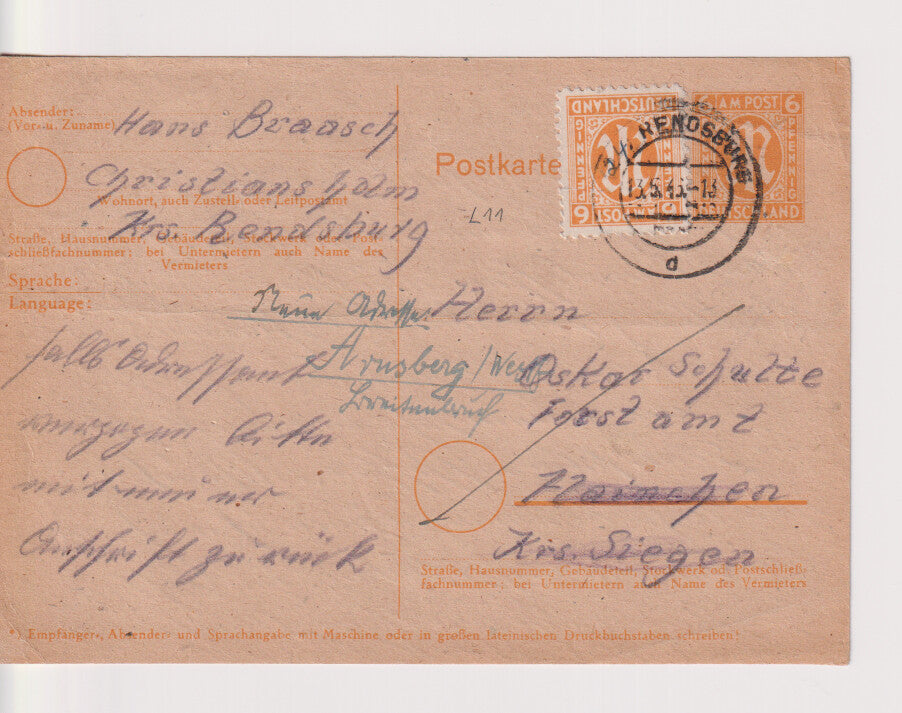 Absender:
(Vor- u. Zuname)
Hans Braasch
Christiansholm
Wohnort, auch Zustell- oder Leitpostamt
Krs. Rendsburg
Straße, Hausnummer, Gebäudeteil, Stockwerk oder Post-
schließfachnummer; bei Untermietern auch Name des
Vermieters
Sprache:
Language:
falls Adressant
verzogen bitte
mit neuer
Anschrift zurück
Postkarte
L11
DEUTSCHLAND
PFENNIG
AM POST
6 AM POST 6
PFENNIG
DEUTSCHLAND
RENDSBURG
13.5.46-13
d
Neue Adresse:
Arnsberg/Westf
Breitenbruch
Herrn
Oskar Schulte
Forstamt
Hainchen
Krs. Siegen
Straße, Hausnummer, Gebäudeteil, Stockwerk od. Postschließ-
fachnummer; bei Untermietern auch Name des Vermieters
*) Empfänger-, Absender- und Sprachangabe mit Maschine oder in großen lateinischen Druckbuchstaben schreiben!